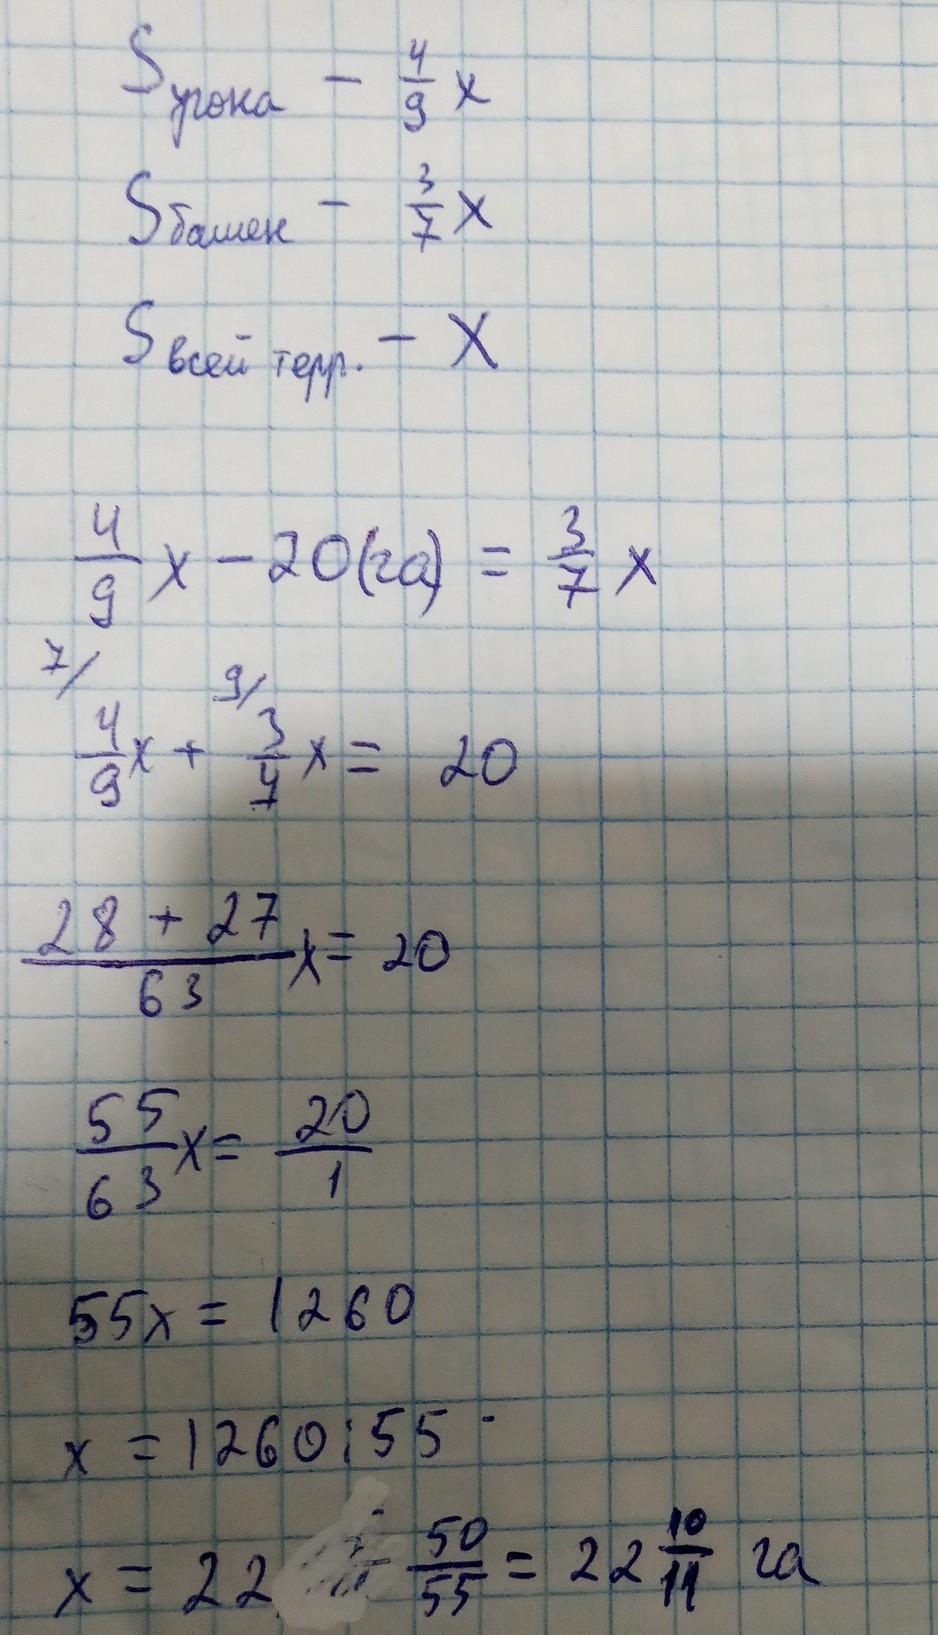 Sурока – 4/9 x
Sбашен – 3/7 x
Sвсей терр. – X
4/9 x – 20(га) = 3/7 x
7/ 9/
4/9 x + 3/7 x = 20
28 + 27/63 x = 20
55/63 x = 20/1
55x = 1260
x = 1260:55
x = 22 50/55 = 22 10/11 га